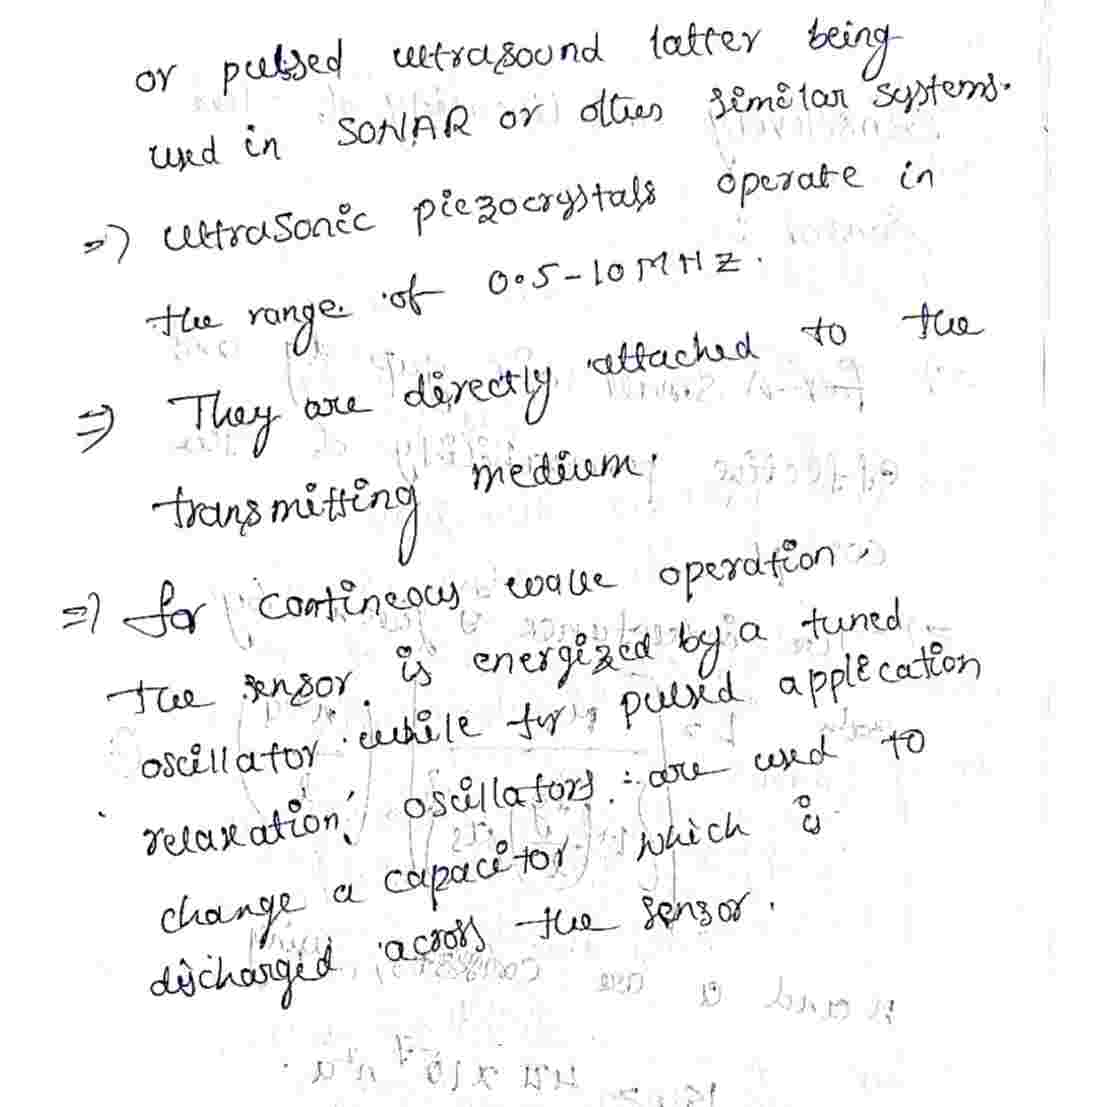 or pulsed ultrasound latter being
used in SONAR or other similar systems.
=> ultrasonic piezocrystals operate in
the range of 0.5-10 MHZ.
=> They are directly attached to the
transmitting medium.
=> for contineous wave operation
the sensor is energized by a tuned
oscillator while for pulsed application
relaxation oscillators are used to
change a capacitor which is
discharged across the sensor.